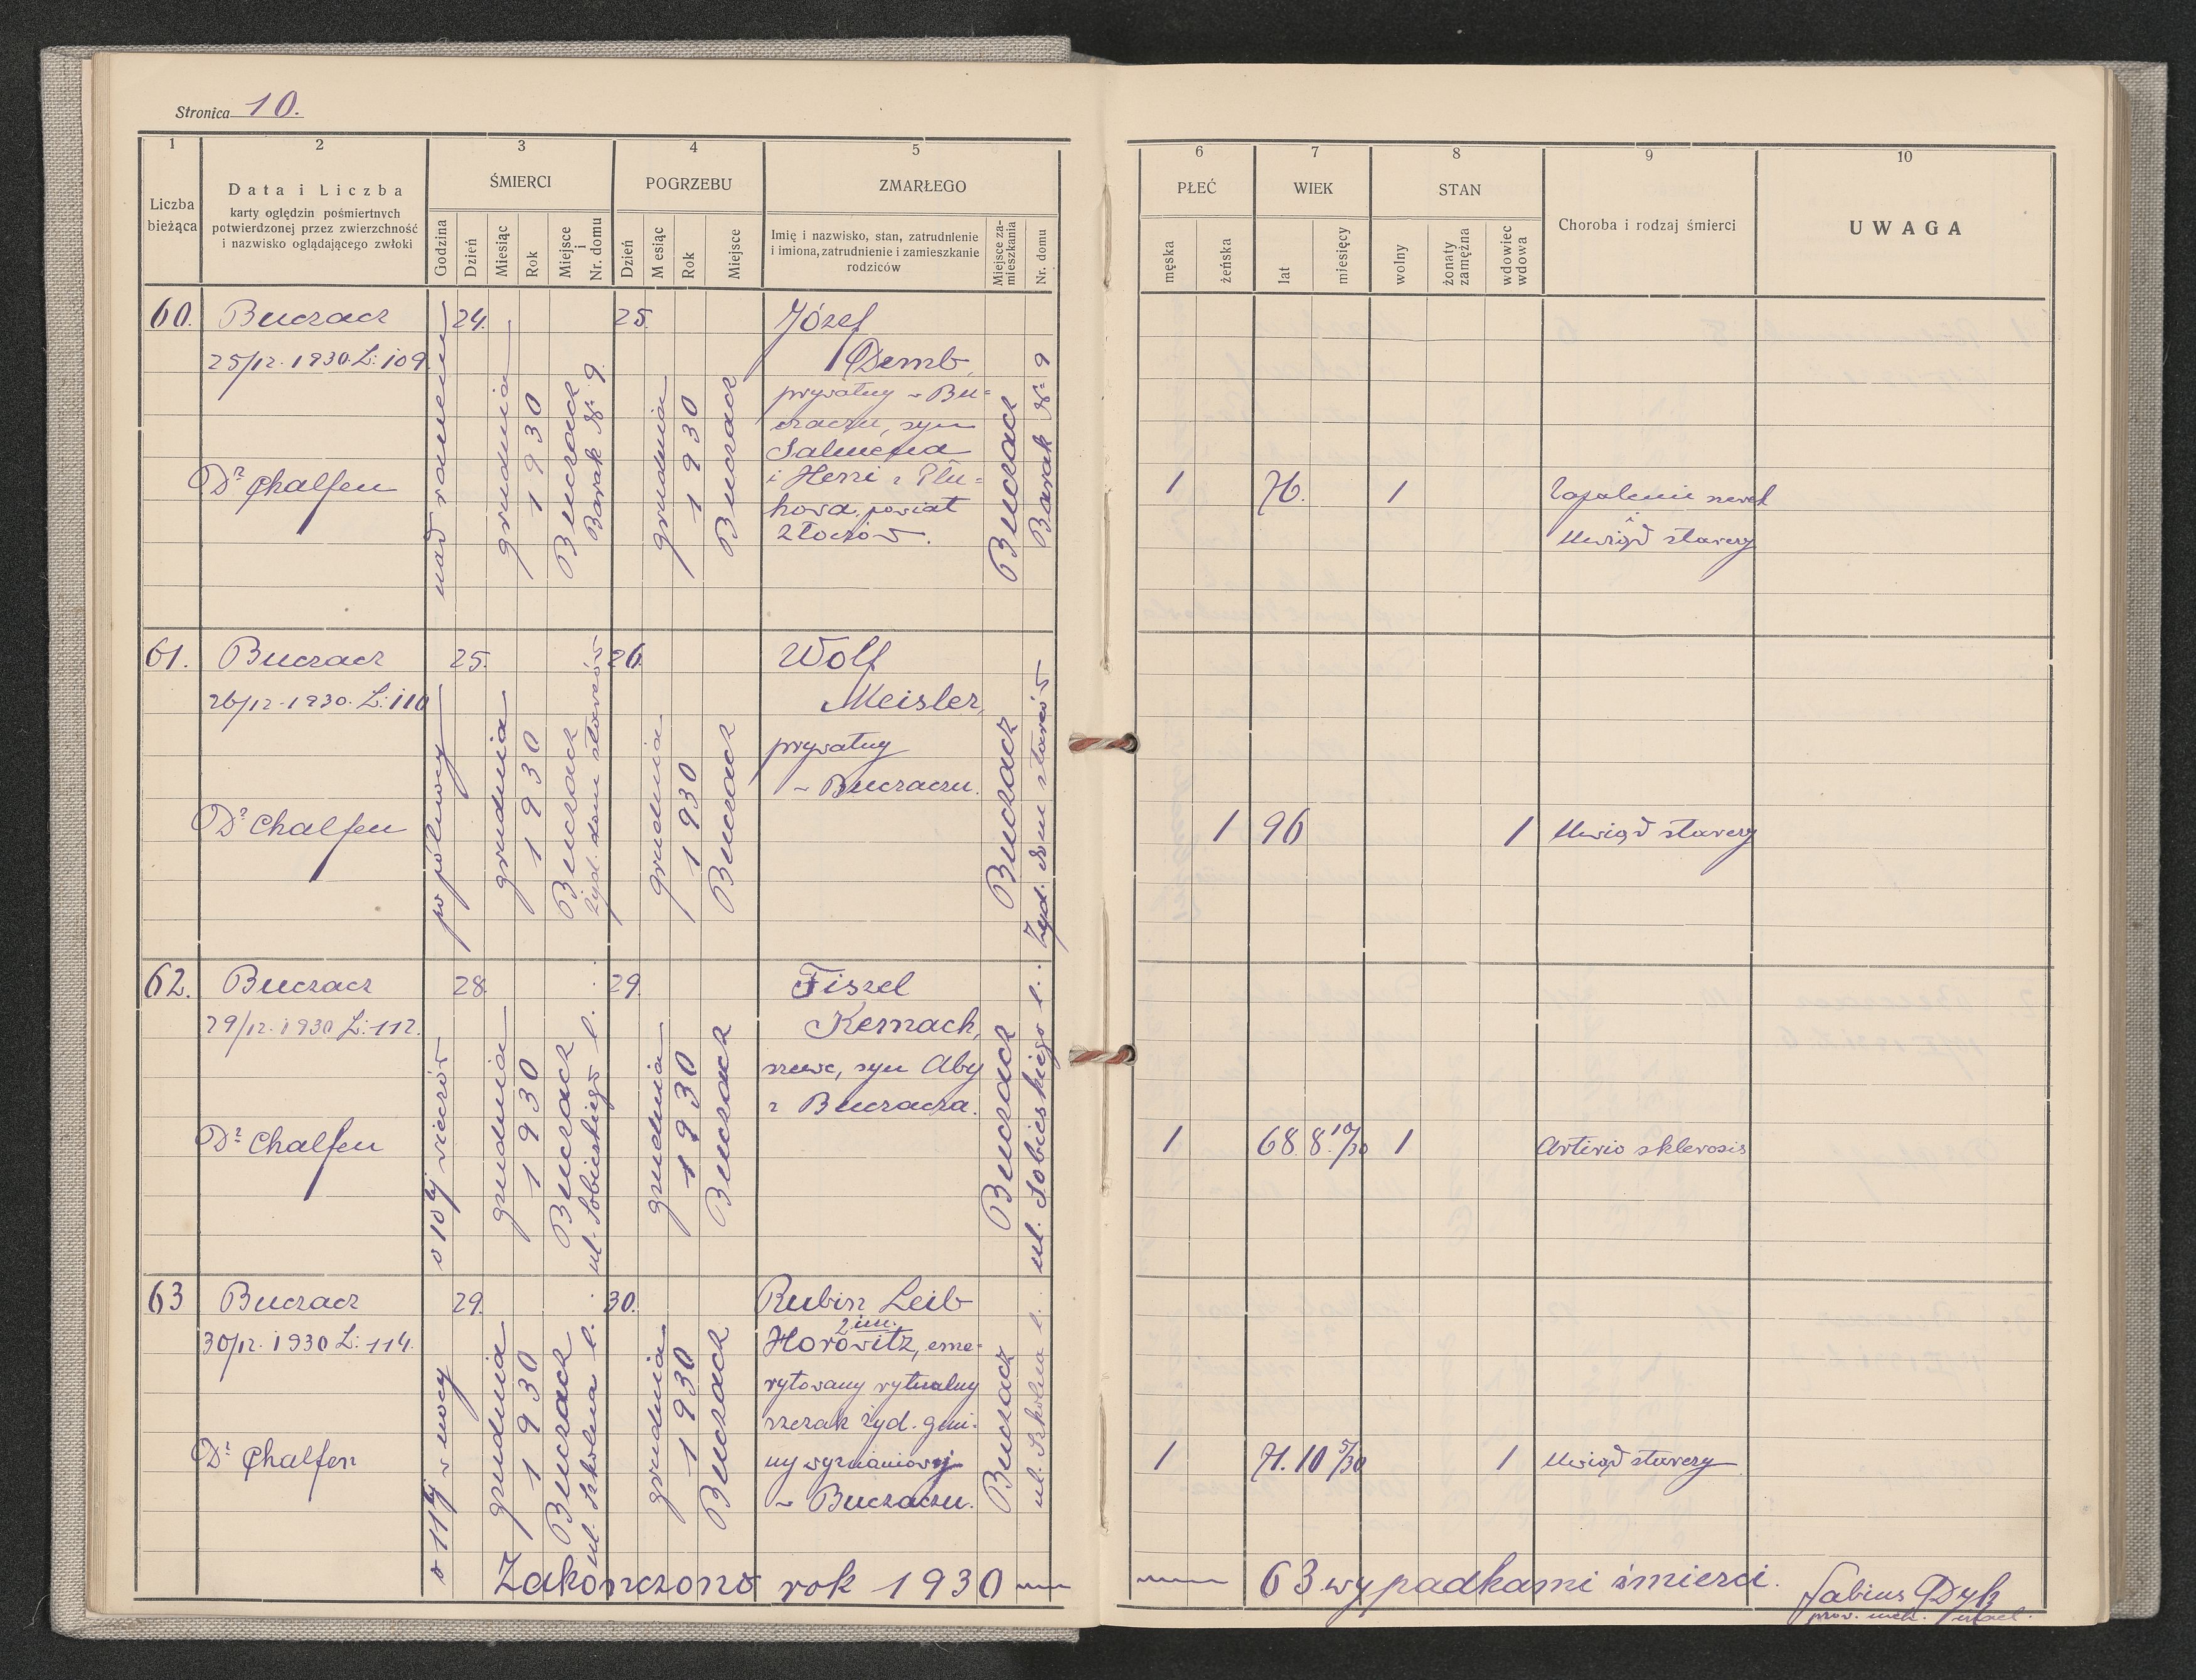 Stronica 10.
1 2 3 4 5
Liczba bieżąca
Data i Liczba
karty oględzin pośmiertnych
potwierdzonej przez zwierzchność
i nazwisko oglądającego zwłoki
ŚMIERCI
Godzina
Dzień
Miesiąc
Rok
Miejsce i Nr. domu
POGRZEBU
Dzień
M esiąc
Rok
Miejsce
ZMARŁEGO
Imię i nazwisko, stan, zatrudnienie
i imiona, zatrudnienie i zamieszkanie
rodziców
Miejsce zamieszkania
Nr. domu
6 7 8 9 10
PŁEĆ
męska
żeńska
WIEK
lat
miesięcy
STAN
wolny
żonaty zamężna
wdowiec wdowa
Choroba i rodzaj śmierci
UWAGA
60.
Buczacz
25/12. 1930. L: 109
Dr Chalfen
nad ranem
24.
grudnia
1930
Buczacz
Barak Nr 9.
25.
grudnia
1930
Buczacz
Józef
Demb,
prywatny w Bu-
czaczu, syn
i Herzi z Płu-
howa, powiat
Złoczów.
Buczacz
Barak Nr 9
1
76.
1
Zapalenie nerek
i
Uwiąd starczy
61.
Buczacz
26/12. 1930. L: 110
Dr Chalfen
po północy
25.
grudnia
1930
Buczacz
żyd. dom starców
26.
grudnia
1930
Buczacz
Wolf
Meisler,
prywatny
w Buczaczu.
Buczacz
Żyd. dom starców
1
96
1
Uwiąd starczy
62.
Buczacz
29/12. 1930 L: 112.
Dr Chalfen
o 10tej wieczór
28.
grudnia
1930
Buczacz
ul. Sobieskiego l.
29.
grudnia
1930
Buczacz
Fiszel
Kernach,
szewc, syn Aby
z Buczacza.
Buczacz
ul. Sobieskiego l.
1
68. 8. 10/30
1
Arterio sklerosis
63
Buczacz
30/12. 1930 L: 114.
Dr Chalfen
o 11tej w nocy
29.
grudnia
1930
Buczacz
ul. Szkolna l.
30.
grudnia
1930
Buczacz
Rubin Leib
2 im.
Horowitz, eme-
rytowany rytualny
rzezak żyd. gmi-
ny wyznaniowej
w Buczaczu.
Buczacz
ul. Szkolna l.
1
71. 10 5/30
1
Uwiąd starczy
Zakończono rok 1930
63 wypadkami śmierci.
Sabius Dyk